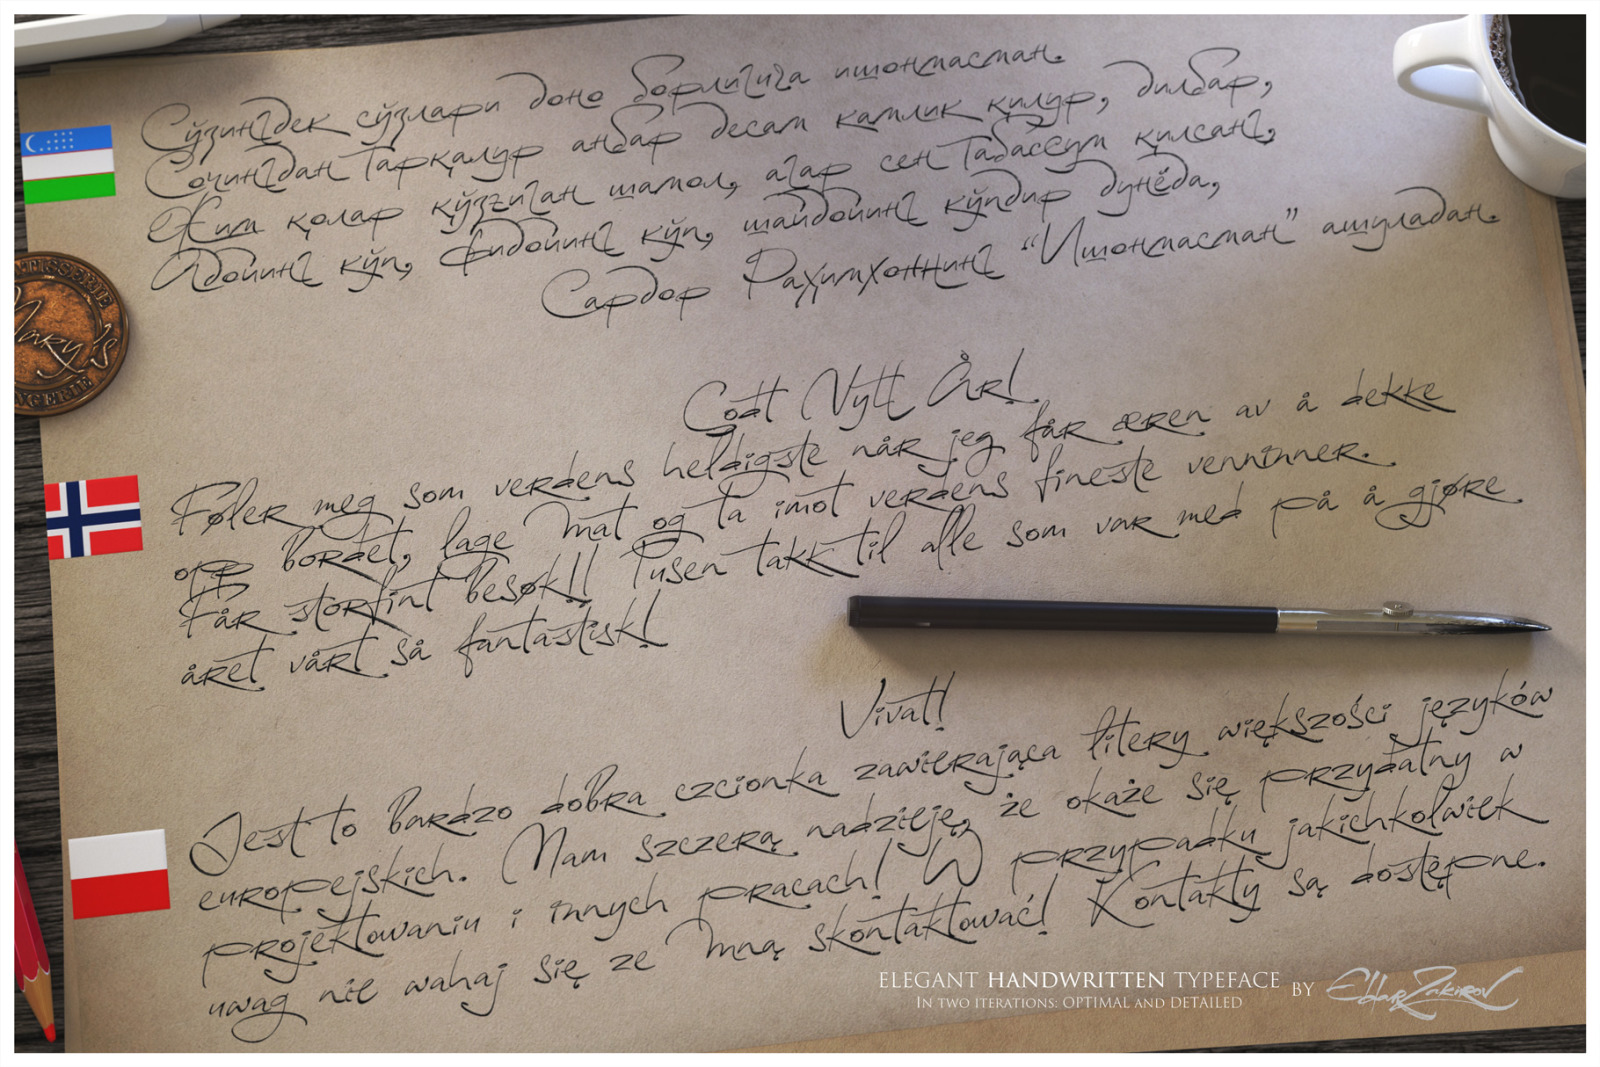 Сўзингдек сўзлари доно борлигига ишонмасман.
Сочингдан тарқалур анбар десам камлик қилур, дилбар,
Жим қолар қўзғиган шамол, агар сен табассум қилсанг,
Адойинг кўп, фидойинг кўп, шайдойинг кўпдир дунёда,
Сардор Раҳимхоннинг “Ишонмасман” ашуладан.
Mary's
Godt Nytt År!
Føler meg som verdens heldigste når jeg får æren av å dekke
opp bordet, lage mat og ta imot verdens fineste venninner.
Får storfint besøk!! Tusen takk til alle som var med på å gjøre
året vårt så fantastisk!
Vivat!
Jest to bardzo dobra czcionka zawierająca litery większości języków
europejskich. Mam szczerą nadzieję, że okaże się przydatny w
projektowaniu i innych pracach! W przypadku jakichkolwiek
uwag nie wahaj się ze mną skontaktować! Kontakty są dostępne.
ELEGANT HANDWRITTEN TYPEFACE BY Eldar Zakirov
IN TWO ITERATIONS: OPTIMAL AND DETAILED